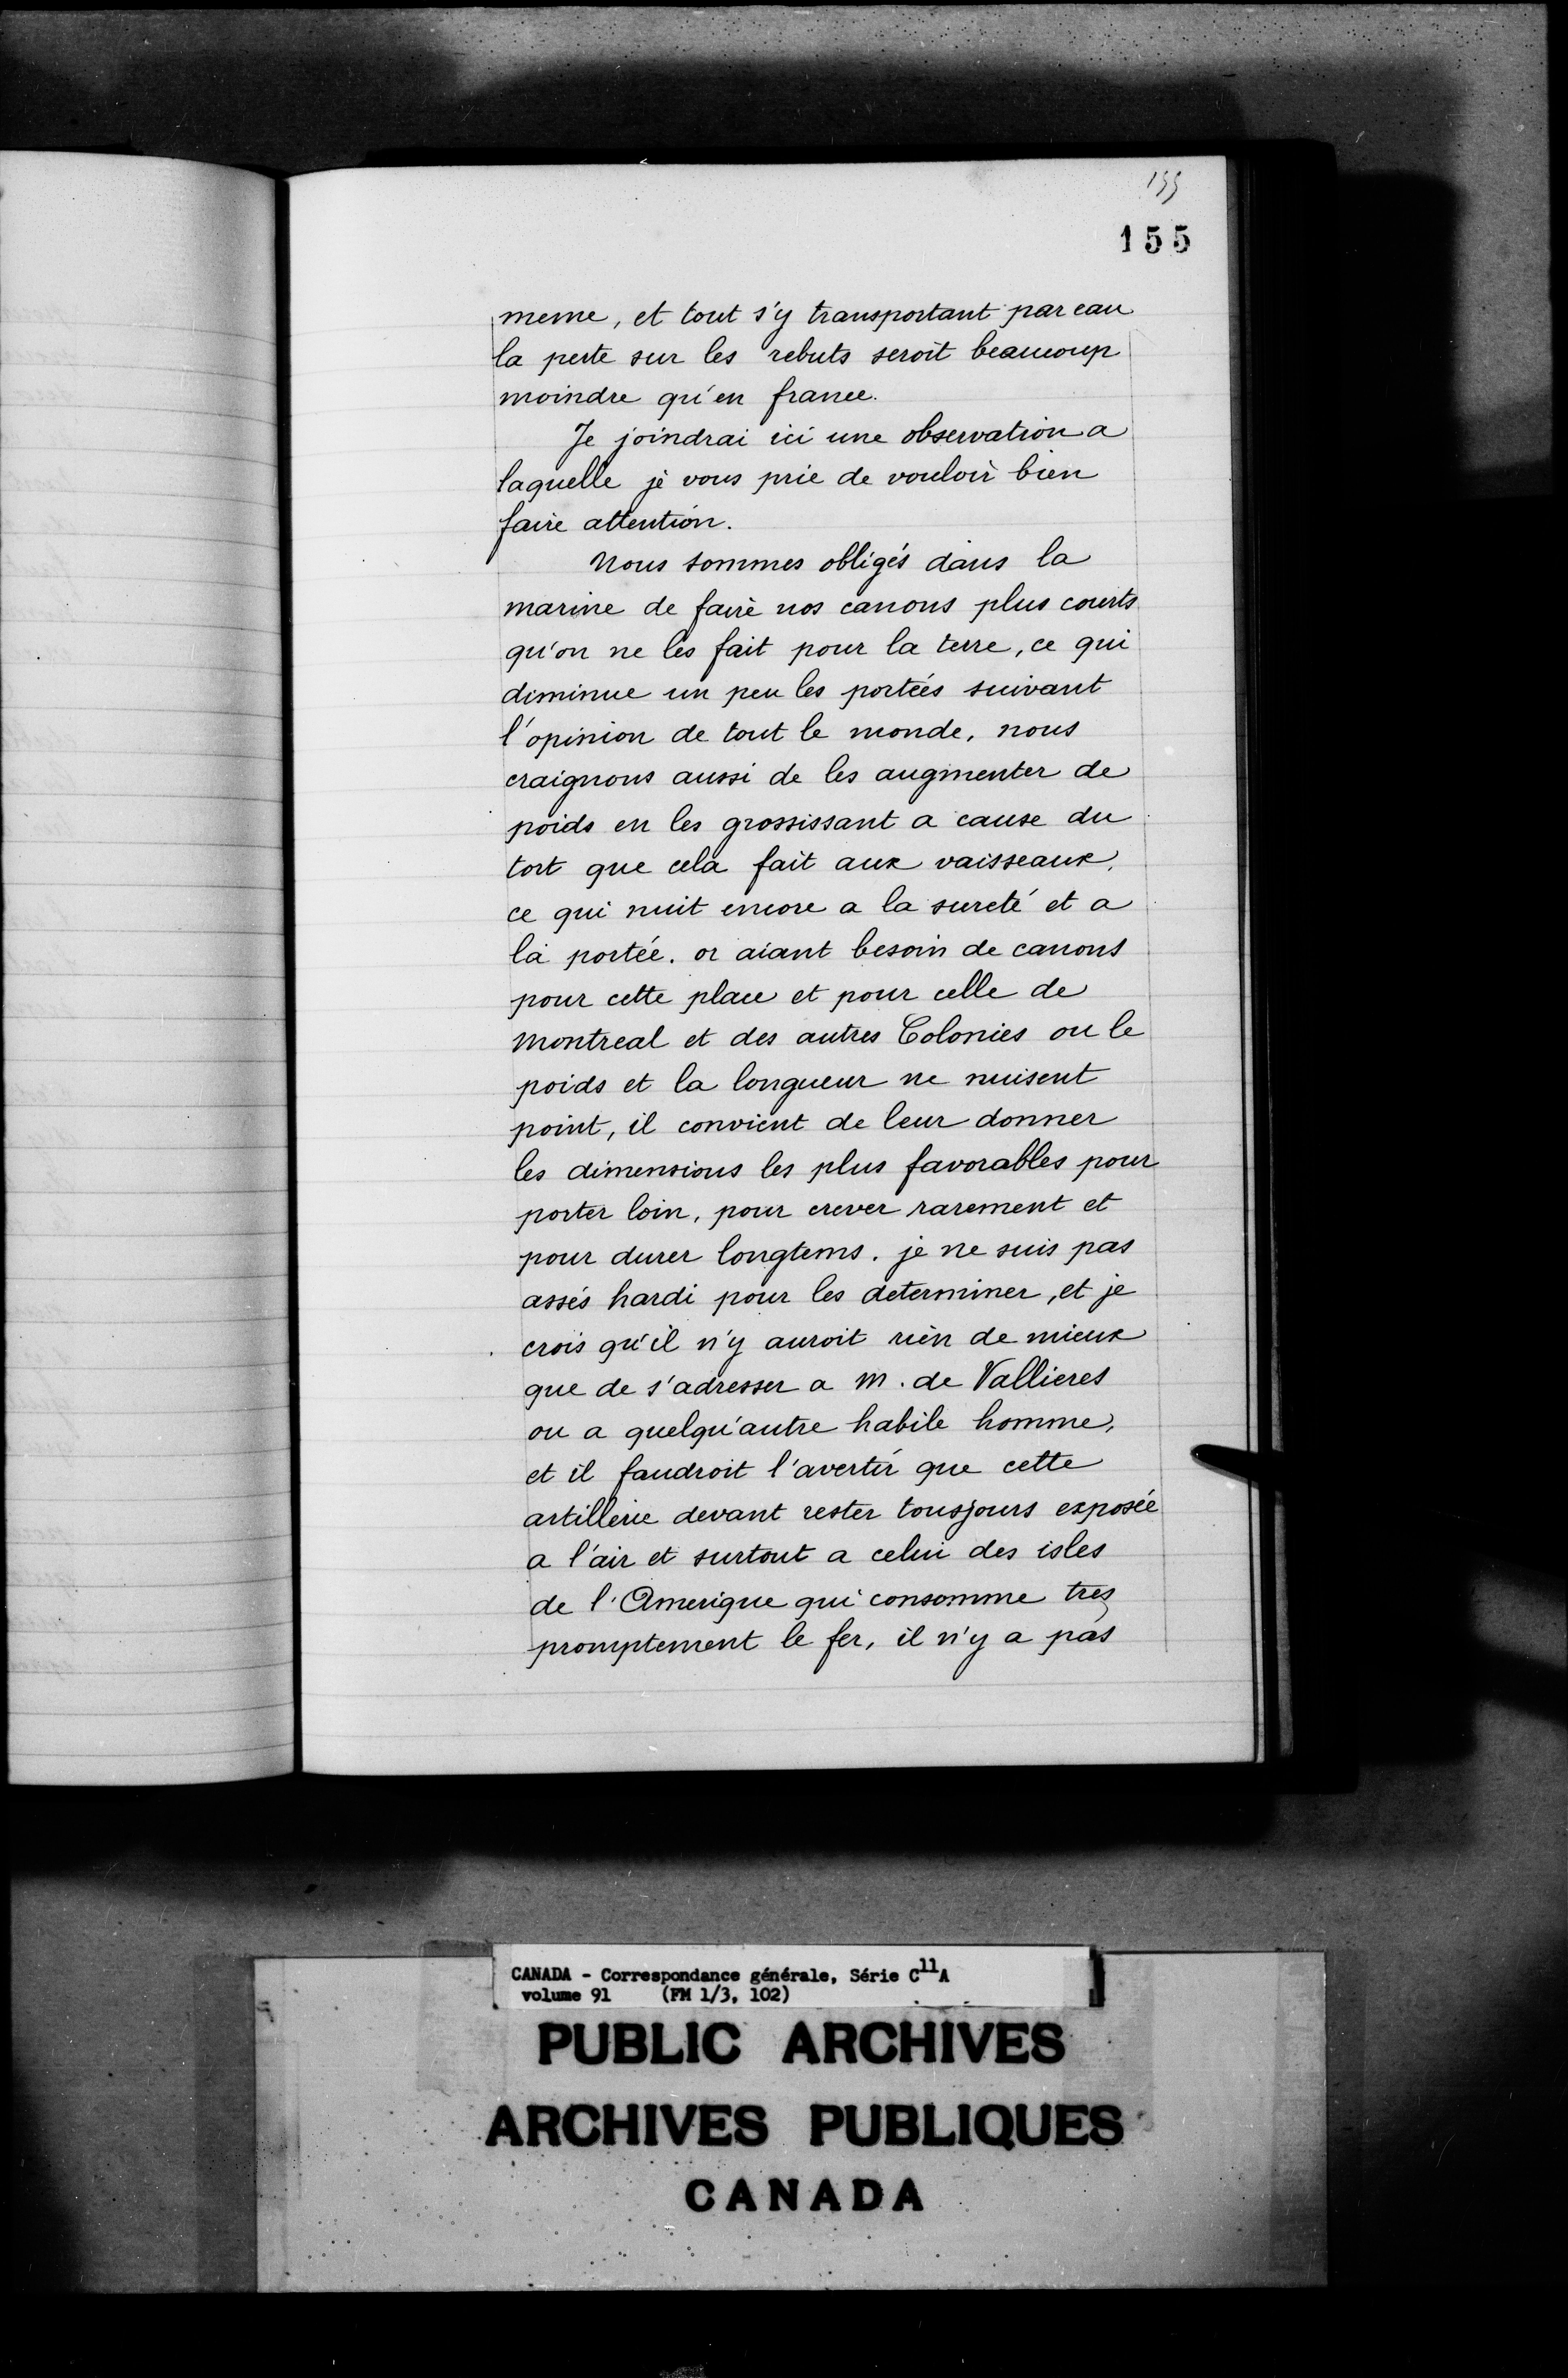 155
155
meme, et tout s'y transportant par eau
la perte sur les rebuts seroit beaucoup
moindre qu'en france.
Je joindrai ici une observation a
laquelle je vous prie de vouloir bien
faire attention.
Nous sommes obligés dans la
marine de faire nos canons plus courts
qu'on ne les fait pour la terre, ce qui
diminue un peu les portées suivant
l'opinion de tout le monde, nous
craignons aussi de les augmenter de
poids en les grossissant a cause du
tort que cela fait aux vaisseaux,
ce qui nuit encore a la sureté et a
la portée. or aiant besoin de canons
pour cette place et pour celle de
Montreal et des autres Colonies ou le
poids et la longueur ne nuisent
point, il convient de leur donner
les dimensions les plus favorables pour
porter loin, pour crever rarement et
pour durer longtems. je ne suis pas
assés hardi pour les determiner, et je
crois qu'il n'y auroit rien de mieux
que de s'adresser a M. de Vallieres
ou a quelqu'autre habile homme,
et il faudroit l'avertir que cette
artillerie devant rester tousjours exposée
a l'air et surtout a celui des isles
de l'Amerique qui consomme tres
promptement le fer, il n'y a pas
CANADA - Correspondance générale, Série C11A
volume 91 (FM 1/3, 102)
PUBLIC ARCHIVES
ARCHIVES PUBLIQUES
CANADA